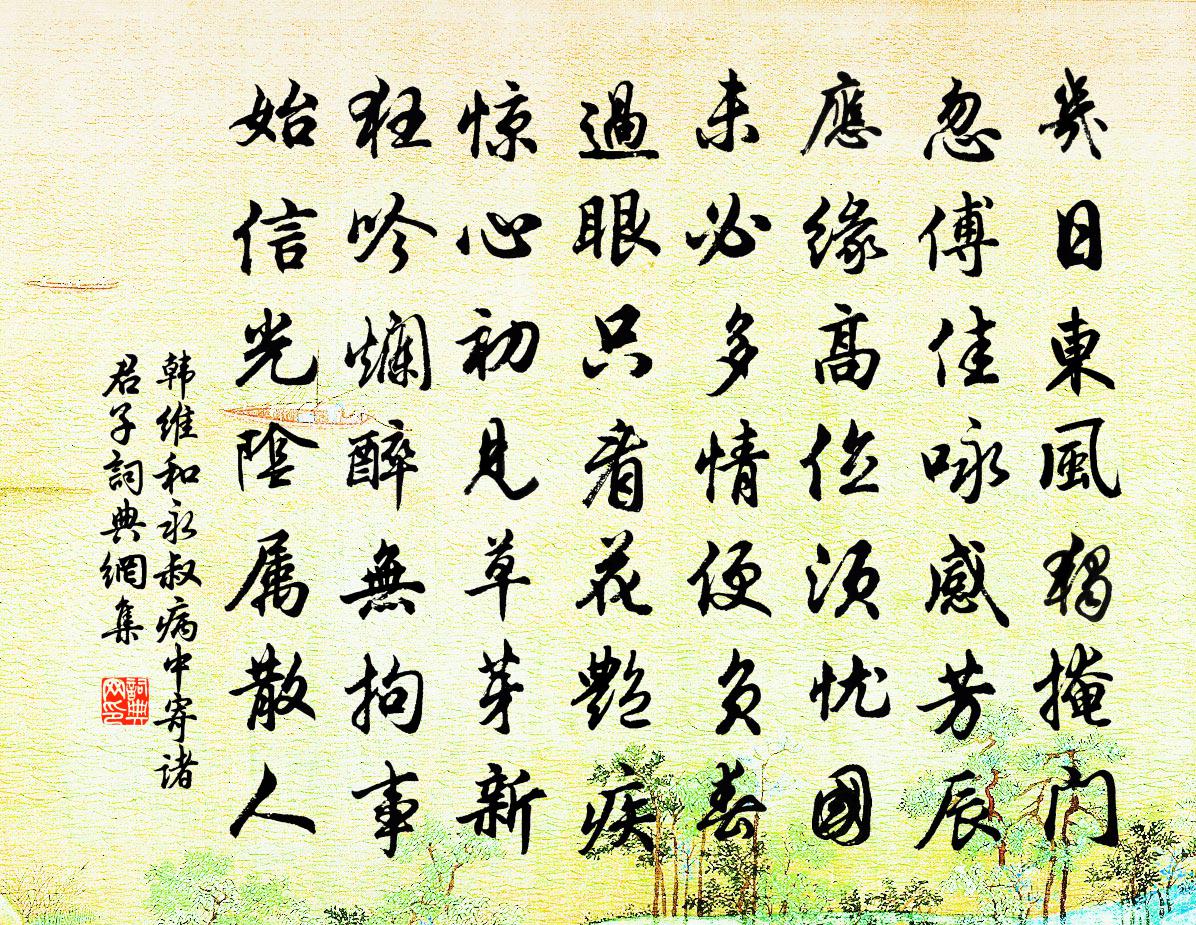 幾日東風獨掩门
忽傅佳咏感芳辰
應緣高位須忧國
未必多情便負春
過眼只看花艷疾
惊心初見草芽新
狂吟爛醉無拘事
始信光陰属散人
韩维和永叔病中寄诸
君子詞典網集
詞典
网印